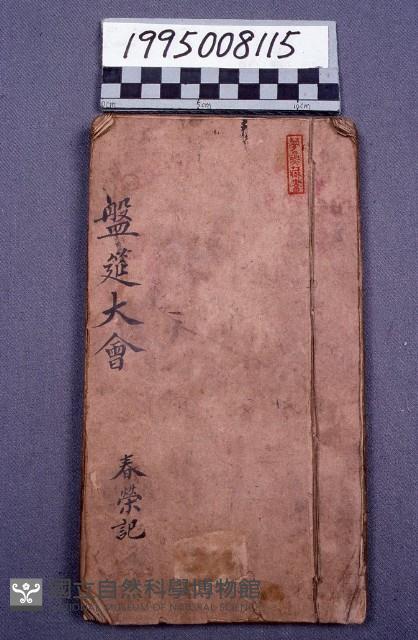 1995008115
0cm 5cm 10cm
盤筵大會
春榮記
國立自然科學博物館
NATIONAL MUSEUM OF NATURAL SCIENCE